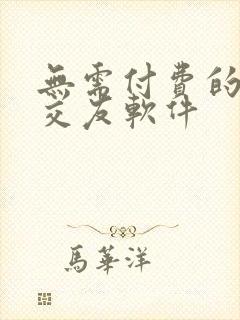 無需付費的
交友軟件
馬華洋